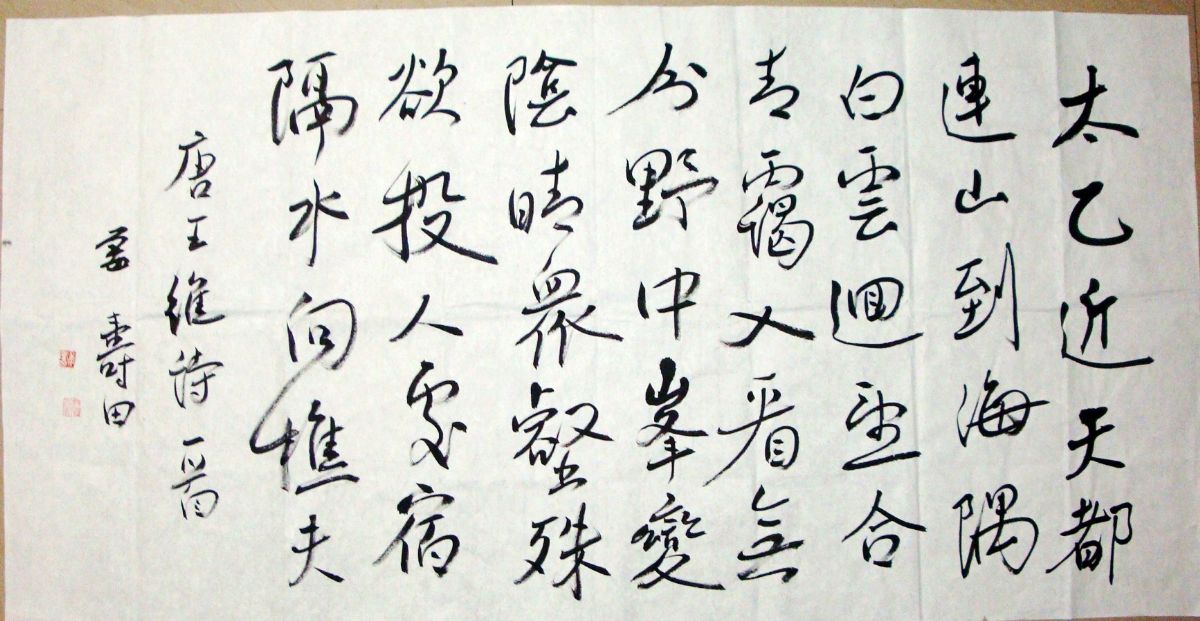 太乙近天都
連山到海隅
白雲迴望合
青靄入看無
分野中峯變
陰晴衆壑殊
欲投人處宿
隔水問樵夫
唐王維詩一首
姜壽田